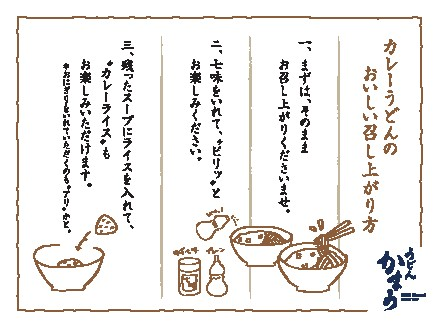 カレーうどんの
おいしい召し上がり方
一、まずは、そのまま
お召し上がりくださいませ。
二、七味をいれて、"ピリッ"と
お楽しみください。
三、残ったスープにライスを入れて、
"カレーライス"も
お楽しみいただけます。
*おにぎりをいれていただくのも"アリ"かと。
うどん